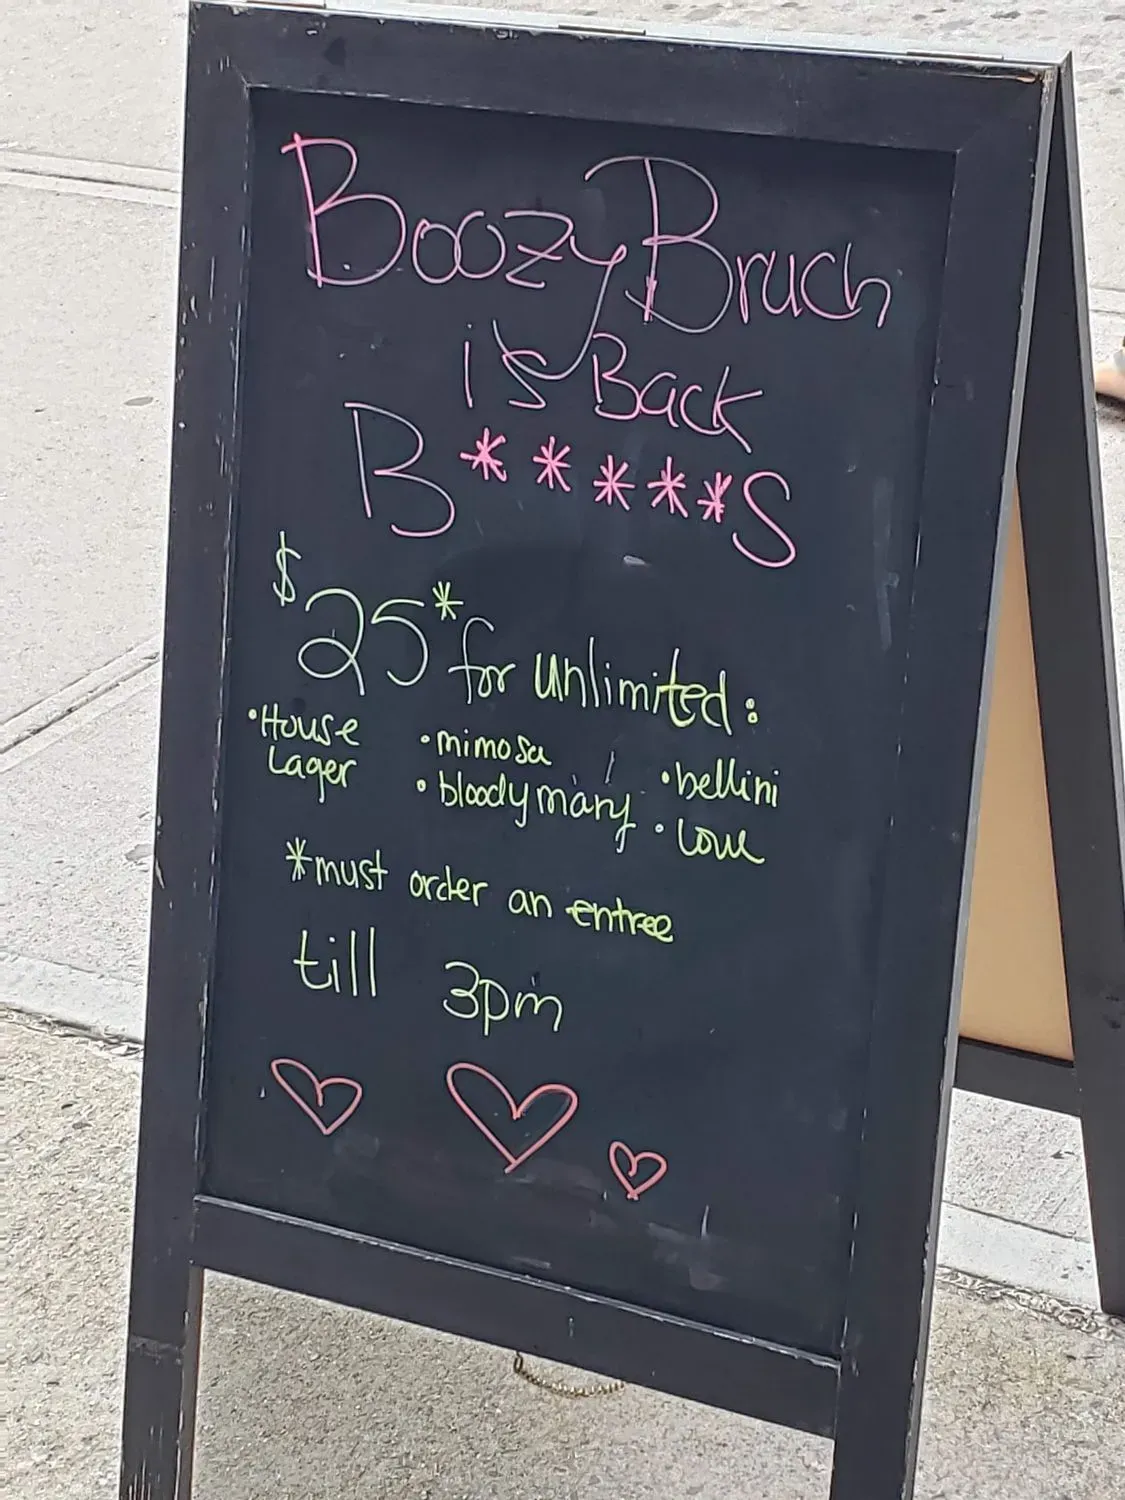 Boozy Bruch
is Back
B*****S
$25* for unlimited:
• House Lager
• mimosa
• bloody mary
• bellini
• Love
*must order an entree
till 3pm